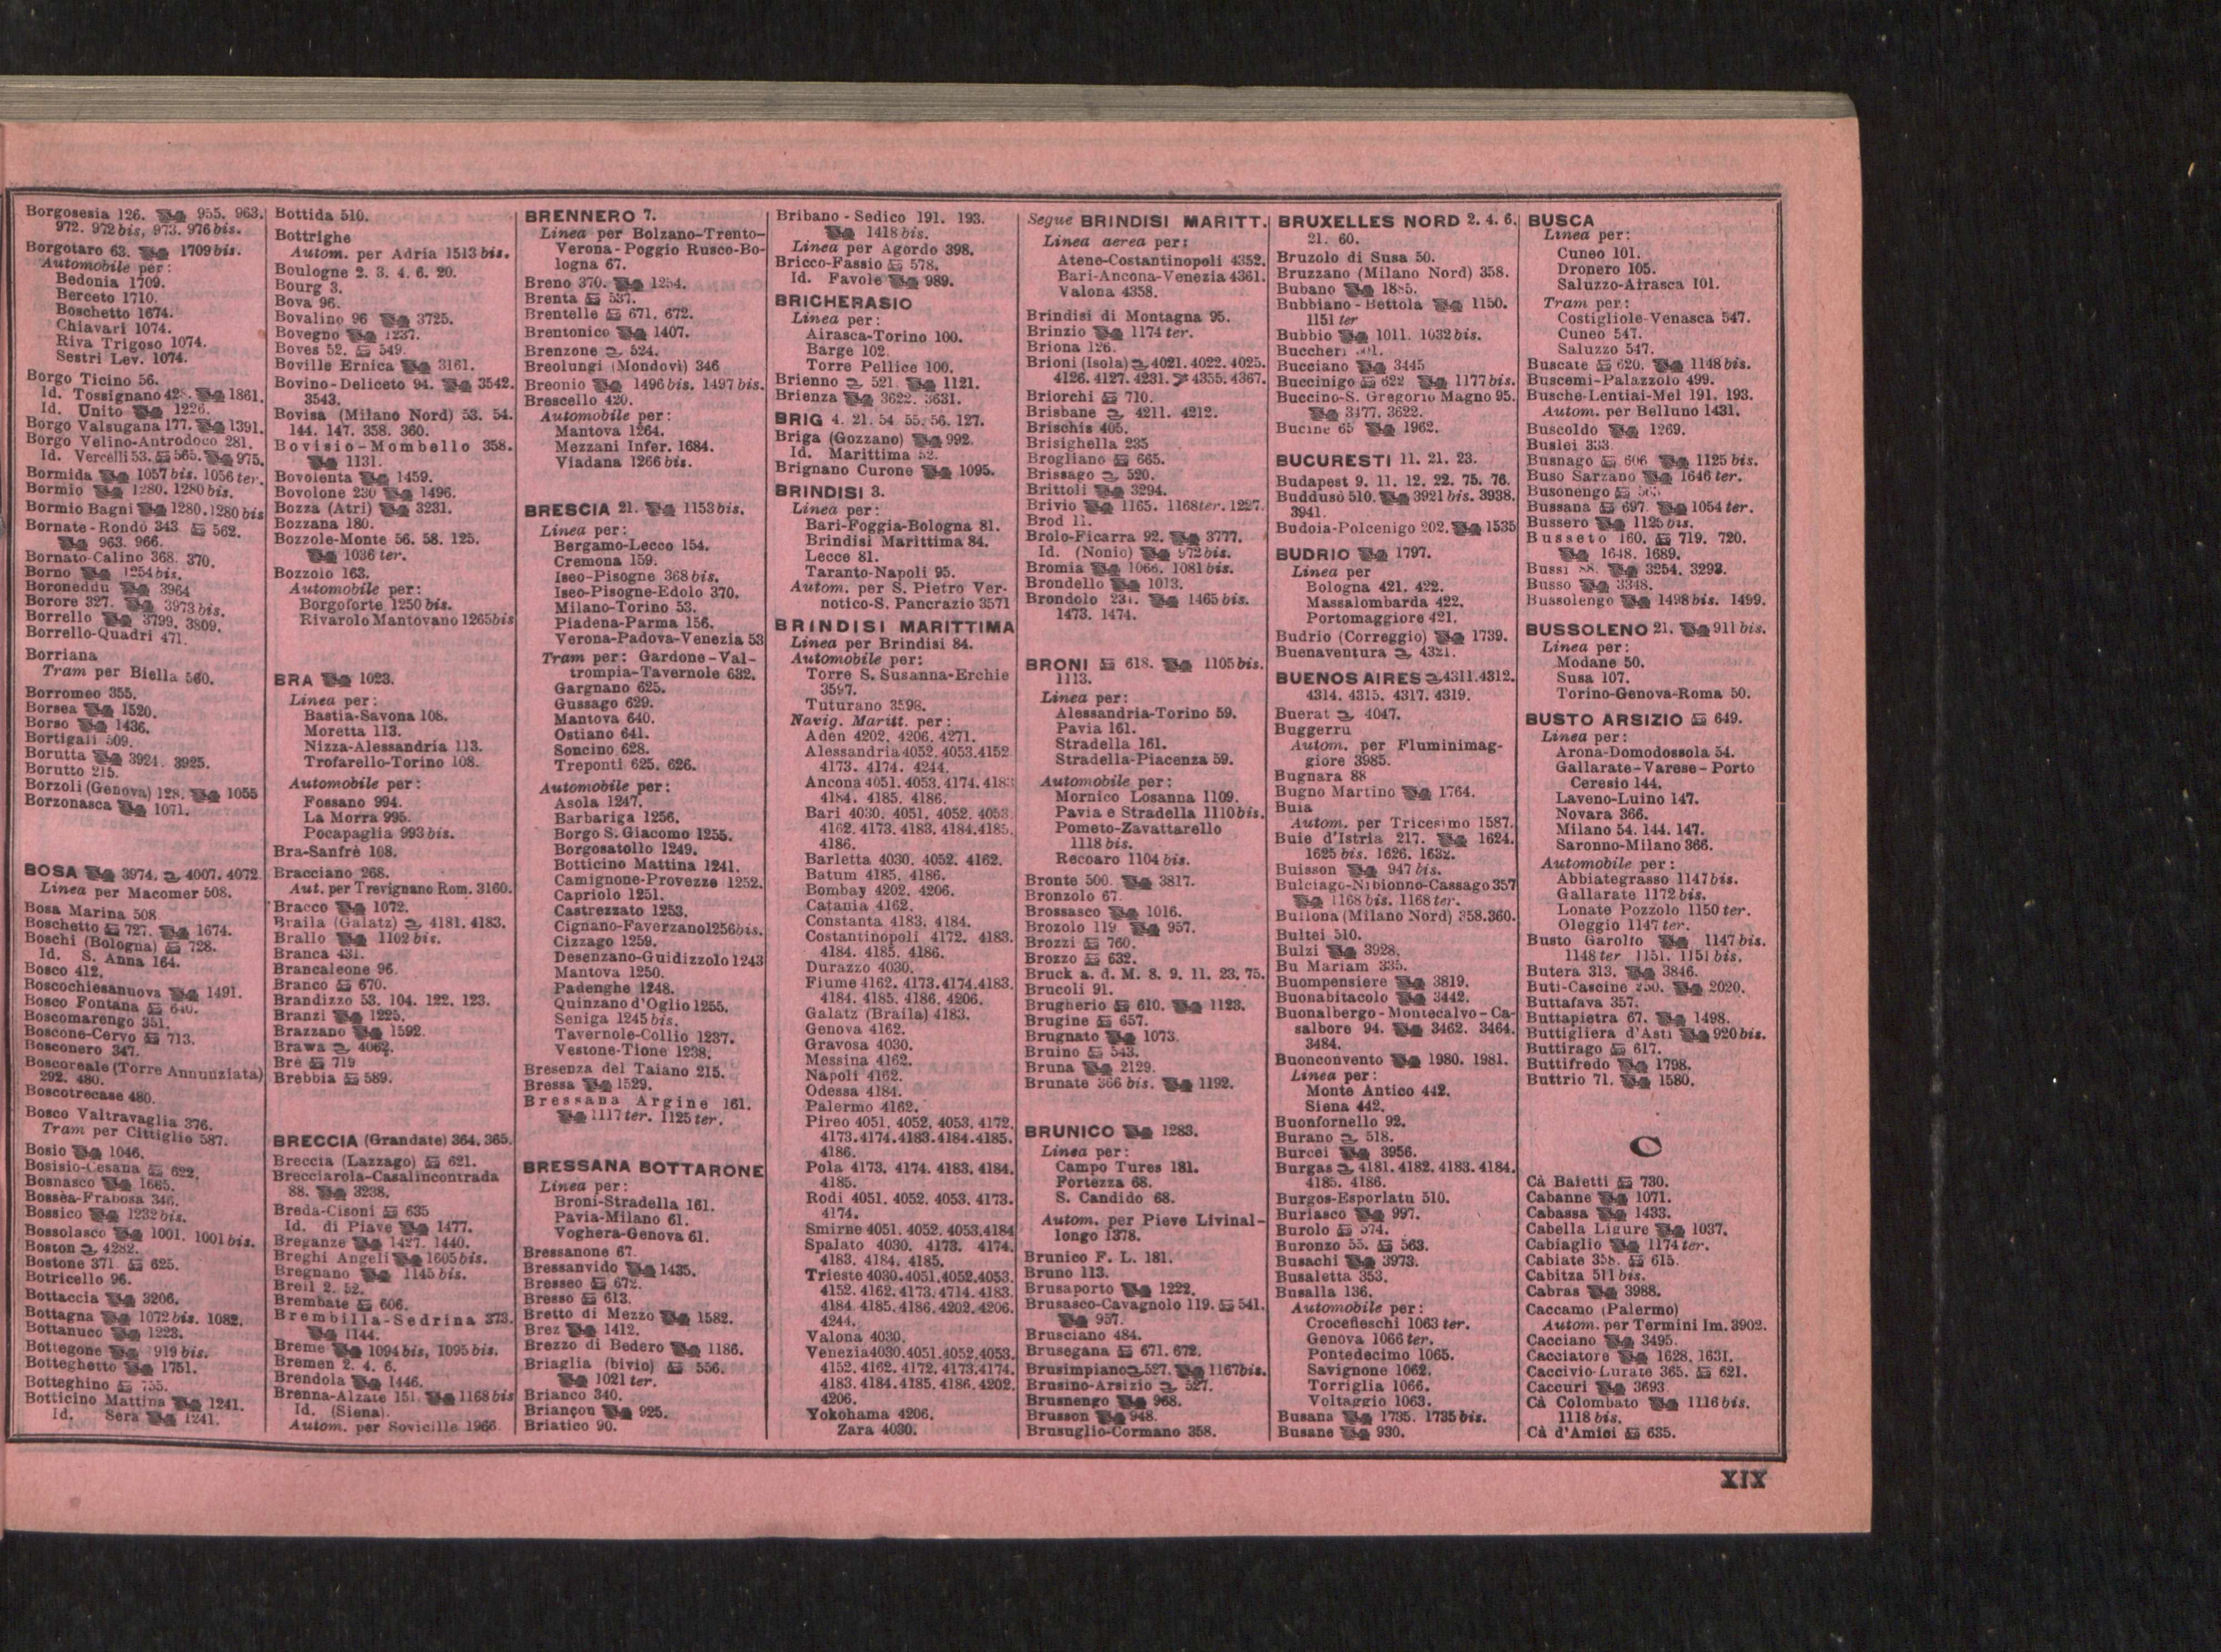 Borgosesia 126. 955. 963.
972. 972 bis, 973. 976 bis.
Borgotaro 63. 1709 bis.
Automobile per:
Bedonia 1709.
Berceto 1710.
Boschetto 1674.
Chiavari 1074.
Riva Trigoso 1074.
Sestri Lev. 1074.
Borgo Ticino 56.
Id. Tossignano 428. 1861.
Id. Unito 1226.
Borgo Valsugana 177. 1391.
Borgo Velino-Antrodoco 281.
Id. Vercelli 53. 565. 975.
Bormida 1057 bis. 1056 ter.
Bormio 1280. 1280 bis.
Bormio Bagni 1280. 1280 bis
Bornate-Rondò 343 562.
963. 966.
Bornato-Calino 368. 370.
Borno 1254 bis.
Boroneddu 3964
Borore 327. 3973 bis.
Borrello 3799. 3809.
Borrello-Quadri 471.
Borriana
Tram per Biella 560.
Borromeo 355.
Borsea 1520.
Borso 1436.
Bortigali 509.
Borutta 3924. 3925.
Borutto 215.
Borzoli (Genova) 128. 1055
Borzonasca 1071.
BOSA 3974. 4007. 4072
Linea per Macomer 508.
Bosa Marina 508
Boschetto 727. 1674.
Boschi (Bologna) 728.
Id. S. Anna 164.
Bosco 412.
Boscochiesanuova 1491.
Bosco Fontana 640.
Boscomarengo 351.
Boscone-Cervo 713.
Bosconero 347.
Boscoreale (Torre Annunziata)
292. 480.
Boscotrecase 480.
Bosco Valtravaglia 376.
Tram per Cittiglio 587.
Bosio 1046.
Bosisio-Cesana 622.
Bosnasco 1665.
Bossèa-Frabosa 346.
Bossico 1232 bis.
Bossolasco 1001. 1001 bis.
Boston 4282.
Bostone 371 625.
Botricello 96.
Bottaccia 3206.
Bottagna 1072 bis. 1082.
Bottanuco 1223.
Bottegone 919 bis.
Botteghetto 1751.
Botteghino 755.
Botticino Mattina 1241.
Id. Sera 1241.
Bottida 510.
Bottrighe
Autom. per Adria 1513 bis.
Boulogne 2. 3. 4. 6. 20.
Bourg 3.
Bova 96.
Bovalino 96 3725.
Bovegno 1237.
Boves 52. 549.
Boville Ernica 3161.
Bovino-Deliceto 94. 3542.
3543.
Bovisa (Milano Nord) 53. 54.
144. 147. 358. 360.
Bovisio-Mombello 358.
1131.
Bovolenta 1459.
Bovolone 230 1496.
Bozza (Atri) 3231.
Bozzana 180.
Bozzole-Monte 56. 58. 125.
1036 ter.
Bozzolo 163.
Automobile per:
Borgoforte 1250 bis.
Rivarolo Mantovano 1265 bis
BRA 1023.
Linea per:
Bastia-Savona 108.
Moretta 113.
Nizza-Alessandria 113.
Trofarello-Torino 108.
Automobile per:
Fossano 994.
La Morra 995.
Pocapaglia 993 bis.
Bra-Sanfrè 108.
Bracciano 268.
Aut. per Trevignano Rom. 3160.
Bracco 1072.
Braila (Galatz) 4181. 4183.
Brallo 1102 bis.
Branca 431.
Brancaleone 96.
Branco 670.
Brandizzo 53. 104. 122. 123.
Branzi 1225.
Brazzano 1592.
Brawa 4062.
Bre 719
Brebbia 589.
BRECCIA (Grandate) 364. 365.
Breccia (Lazzago) 621.
Brecciarola-Casalincontrada
88. 3238.
Breda-Cisoni 635
Id. di Piave 1477.
Breganze 1427. 1440.
Breghi Angeli 1605 bis.
Bregnano 1145 bis.
Breil 2. 52.
Brembate 606.
Brembilla-Sedrina 373.
1144.
Breme 1094 bis, 1095 bis.
Bremen 2. 4. 6.
Brendola 1446.
Brenna-Alzate 151. 1168 bis
Id. (Siena).
Autom. per Sovicille 1966
BRENNERO 7.
Linea per Bolzano-Trento-
Verona-Poggio Rusco-Bo-
logna 67.
Breno 370. 1254.
Brenta 537.
Brentelle 671. 672.
Brentonico 1407.
Brenzone 524.
Breolungi (Mondovì) 346
Breonio 1496 bis. 1497 bis.
Brescello 420.
Automobile per:
Mantova 1264.
Mezzani Infer. 1684.
Viadana 1266 bis.
BRESCIA 21. 1153 bis.
Linea per:
Bergamo-Lecco 154.
Cremona 159.
Iseo-Pisogne 368 bis.
Iseo-Pisogne-Edolo 370.
Milano-Torino 53.
Piadena-Parma 156.
Verona-Padova-Venezia 53
Tram per: Gardone-Val-
trompia-Tavernole 632.
Gargnano 625.
Gussago 629.
Mantova 640.
Ostiano 641.
Soncino 628.
Treponti 625. 626.
Automobile per:
Asola 1247.
Barbariga 1256.
Borgo S. Giacomo 1255.
Borgosatollo 1249.
Botticino Mattina 1241.
Camignone-Provezze 1252.
Capriolo 1251.
Castrezzato 1253.
Cignano-Faverzano 1256 bis.
Cizzago 1259.
Desenzano-Guidizzolo 1243
Mantova 1250.
Padenghe 1248.
Quinzano d'Oglio 1255.
Seniga 1245 bis.
Tavernole-Collio 1237.
Vestone-Tione 1238.
Bresenza del Taiano 215.
Bressa 1529.
Bressana Argine 161.
1117 ter. 1125 ter.
BRESSANA BOTTARONE
Linea per:
Broni-Stradella 161.
Pavia-Milano 61.
Voghera-Genova 61.
Bressanone 67.
Bressanvido 1435.
Bresseo 672.
Bresso 613.
Bretto di Mezzo 1582.
Brez 1412.
Brezzo di Bedero 1186.
Briaglia (bivio) 556.
1021 ter.
Brianco 340.
Briançon 925.
Briatico 90.
Bribano-Sedico 191. 193.
1418 bis.
Linea per Agordo 398.
Bricco-Fassio 578.
Id. Favole 989.
BRICHERASIO
Linea per:
Airasca-Torino 100.
Barge 102.
Torre Pellice 100.
Brienno 521. 1121.
Brienza 3622. 3631.
BRIG 4. 21. 54. 55. 56. 127.
Briga (Gozzano) 992.
Id. Marittima 52.
Brignano Curone 1095.
BRINDISI 3.
Linea per:
Bari-Foggia-Bologna 81.
Brindisi Marittima 84.
Lecce 81.
Taranto-Napoli 95.
Autom. per S. Pietro Ver-
notico-S. Pancrazio 3571
BRINDISI MARITTIMA
Linea per Brindisi 84.
Automobile per:
Torre S. Susanna-Erchie
3597.
Tuturano 3598.
Navig. Maritt. per:
Aden 4202. 4206. 4271.
Alessandria 4052. 4053. 4152
4173. 4174. 4244.
Ancona 4051. 4053. 4174. 4183
4184. 4185. 4186.
Bari 4030. 4051. 4052. 4053
4162. 4173. 4183. 4184. 4185.
4186.
Barletta 4030. 4052. 4162.
Batum 4185. 4186.
Bombay 4202. 4206.
Catania 4162.
Constanta 4183. 4184.
Costantinopoli 4172. 4183.
4184. 4185. 4186.
Durazzo 4030.
Fiume 4162. 4173. 4174. 4183.
4184. 4185. 4186. 4206.
Galatz (Braila) 4183.
Genova 4162.
Gravosa 4030.
Messina 4162.
Napoli 4162.
Odessa 4184.
Palermo 4162.
Pireo 4051. 4052. 4053. 4172.
4173. 4174. 4183. 4184. 4185.
4186.
Pola 4173. 4174. 4183. 4184.
4185.
Rodi 4051. 4052. 4053. 4173.
4174.
Smirne 4051. 4052. 4053. 4184
Spalato 4030. 4173. 4174.
4183. 4184. 4185.
Trieste 4030. 4051. 4052. 4053.
4152. 4162. 4173. 4714. 4183.
4184. 4185. 4186. 4202. 4206.
4244.
Valona 4030.
Venezia 4030. 4051. 4052. 4053.
4152. 4162. 4172. 4173. 4174.
4183. 4184. 4185. 4186. 4202.
4206.
Yokohama 4206.
Zara 4030.
Segue BRINDISI MARITT.
Linea aerea per:
Atene-Costantinopoli 4352.
Bari-Ancona-Venezia 4361.
Valona 4358.
Brindisi di Montagna 95.
Brinzio 1174 ter.
Briona 126.
Brioni (Isola) 4021. 4022. 4025.
4126. 4127. 4231. 4355. 4367.
Briorchi 710.
Brisbane 4211. 4212.
Brischis 405.
Brisighella 235
Brogliano 665.
Brissago 520.
Brittoli 3294.
Brivio 1165. 1168 ter. 1227.
Brod 11.
Brolo-Ficarra 92. 3777.
Id. (Nonio) 972 bis.
Bromia 1066. 1081 bis.
Brondello 1013.
Brondolo 1465 bis.
1473. 1474.
BRONI 618. 1105 bis.
1113.
Linea per:
Alessandria-Torino 59.
Pavia 161.
Stradella 161.
Stradella-Piacenza 59.
Automobile per:
Mornico Losanna 1109.
Pavia e Stradella 1110 bis.
Pometo-Zavattarello
1118 bis.
Recoaro 1104 bis.
Bronte 500. 3817.
Bronzolo 67.
Brossasco 1016.
Brozolo 119 957.
Brozzi 760.
Brozzo 632.
Bruck a. d. M. 8. 9. 11. 23. 75.
Brucoli 91.
Brugherio 610. 1123.
Brugine 657.
Brugnato 1073.
Bruino 543.
Bruna 2129.
Brunate 366 bis. 1192.
BRUNICO 1283.
Linea per:
Campo Tures 181.
Fortezza 68.
S. Candido 68.
Autom. per Pieve Livinal-
longo 1378.
Brunico F. L. 181.
Bruno 113.
Brusaporto 1222.
Brusasco-Cavagnolo 119. 541.
957.
Brusciano 484.
Brusegana 671. 672.
Brusimpiano 527. 1167 bis.
Brusino-Arsizio 527.
Brusnengo 968.
Brusson 948.
Brusuglio-Cormano 358.
BRUXELLES NORD 2. 4. 6.
21. 60.
Bruzolo di Susa 50.
Bruzzano (Milano Nord) 358.
Bubano 1885.
Bubbiano-Bettola 1150.
1151 ter
Bubbio 1011. 1032 bis.
Buccheri
Bucciano 3445
Buccinigo 622 1177 bis.
Buccino-S. Gregorio Magno 95.
3477. 3622.
Bucine 65 1962.
BUCURESTI 11. 21. 23.
Budapest 9. 11. 12. 22. 75. 76.
Buddusò 510. 3921 bis. 3938.
3941.
Budoia-Polcenigo 202. 1535
BUDRIO 1797.
Linea per
Bologna 421. 422.
Massalombarda 422.
Portomaggiore 421.
Budrio (Correggio) 1739.
Buenaventura 4321.
BUENOS AIRES 4311. 4312.
4314. 4315. 4317. 4319.
Buerat 4047.
Buggerru
Autom. per Fluminimag-
giore 3985.
Bugnara 88
Bugno Martino 1764.
Buia
Autom. per Tricesimo 1587.
Buie d'Istria 217. 1624.
1625 bis. 1626. 1632.
Buisson 947 bis.
Bulciago-Nibionno-Cassago 357
1168 bis. 1168 ter.
Bullona (Milano Nord) 358. 360.
Bultei 510.
Bulzi 3928.
Bu Mariam 335.
Buompensiere 3819.
Buonabitacolo 3442.
Buonalbergo-Montecalvo-Ca-
salbore 94. 3462. 3464.
3484.
Buonconvento 1980. 1981.
Linea per:
Monte Antico 442.
Siena 442.
Buonfornello 92.
Burano 518.
Burcei 3956.
Burgas 4181. 4182. 4183. 4184.
4185. 4186.
Burgos-Esporlatu 510.
Buriasco 997.
Burolo 574.
Buronzo 55. 563.
Busachi 3973.
Busaletta 353.
Busalla 136.
Automobile per:
Crocefieschi 1063 ter.
Genova 1066 ter.
Pontedecimo 1065.
Savignone 1062.
Torriglia 1066.
Voltaggio 1063.
Busana 1735. 1735 bis.
Busane 930.
BUSCA
Linea per:
Cuneo 101.
Dronero 105.
Saluzzo-Airasca 101.
Tram per:
Costigliole-Venasca 547.
Cuneo 547.
Saluzzo 547.
Buscate 620. 1148 bis.
Buscemi-Palazzolo 499.
Busche-Lentiai-Mel 191. 193.
Autom. per Belluno 1431.
Buscoldo 1269.
Buslei 333.
Busnago 606 1125 bis.
Buso Sarzano 1646 ter.
Busonengo
Bussana 697. 1054 ter.
Bussero 1125 bis.
Busseto 160. 719. 720.
1648. 1689.
Bussi 88. 3254. 3293.
Busso 3348.
Bussolengo 1498 bis. 1499.
BUSSOLENO 21. 911 bis.
Linea per:
Modane 50.
Susa 107.
Torino-Genova-Roma 50.
BUSTO ARSIZIO 649.
Linea per:
Arona-Domodossola 54.
Gallarate-Varese-Porto
Ceresio 144.
Laveno-Luino 147.
Novara 366.
Milano 54. 144. 147.
Saronno-Milano 366.
Automobile per:
Abbiategrasso 1147 bis.
Gallarate 1172 bis.
Lonate Pozzolo 1150 ter.
Oleggio 1147 ter.
Busto Garolfo 1147 bis.
1148 ter 1151. 1151 bis.
Butera 313. 3846.
Buti-Cascine 250. 2020.
Buttafava 357.
Buttapietra 67. 1498.
Buttigliera d'Asti 920 bis.
Buttirago 617.
Buttifredo 1798.
Buttrio 71. 1580.
C
Cà Baietti 730.
Cabanne 1071.
Cabassa 1433.
Cabella Ligure 1037.
Cabiaglio 1174 ter.
Cabiate 358. 615.
Cabitza 511 bis.
Cabras 3988.
Caccamo (Palermo)
Autom. per Termini Im. 3902.
Cacciano 3495.
Cacciatore 1628. 1631.
Caccivio-Lurate 365. 621.
Caccuri 3693
Cà Colombato 1116 bis.
1118 bis.
Cà d'Amici 635.
XIX